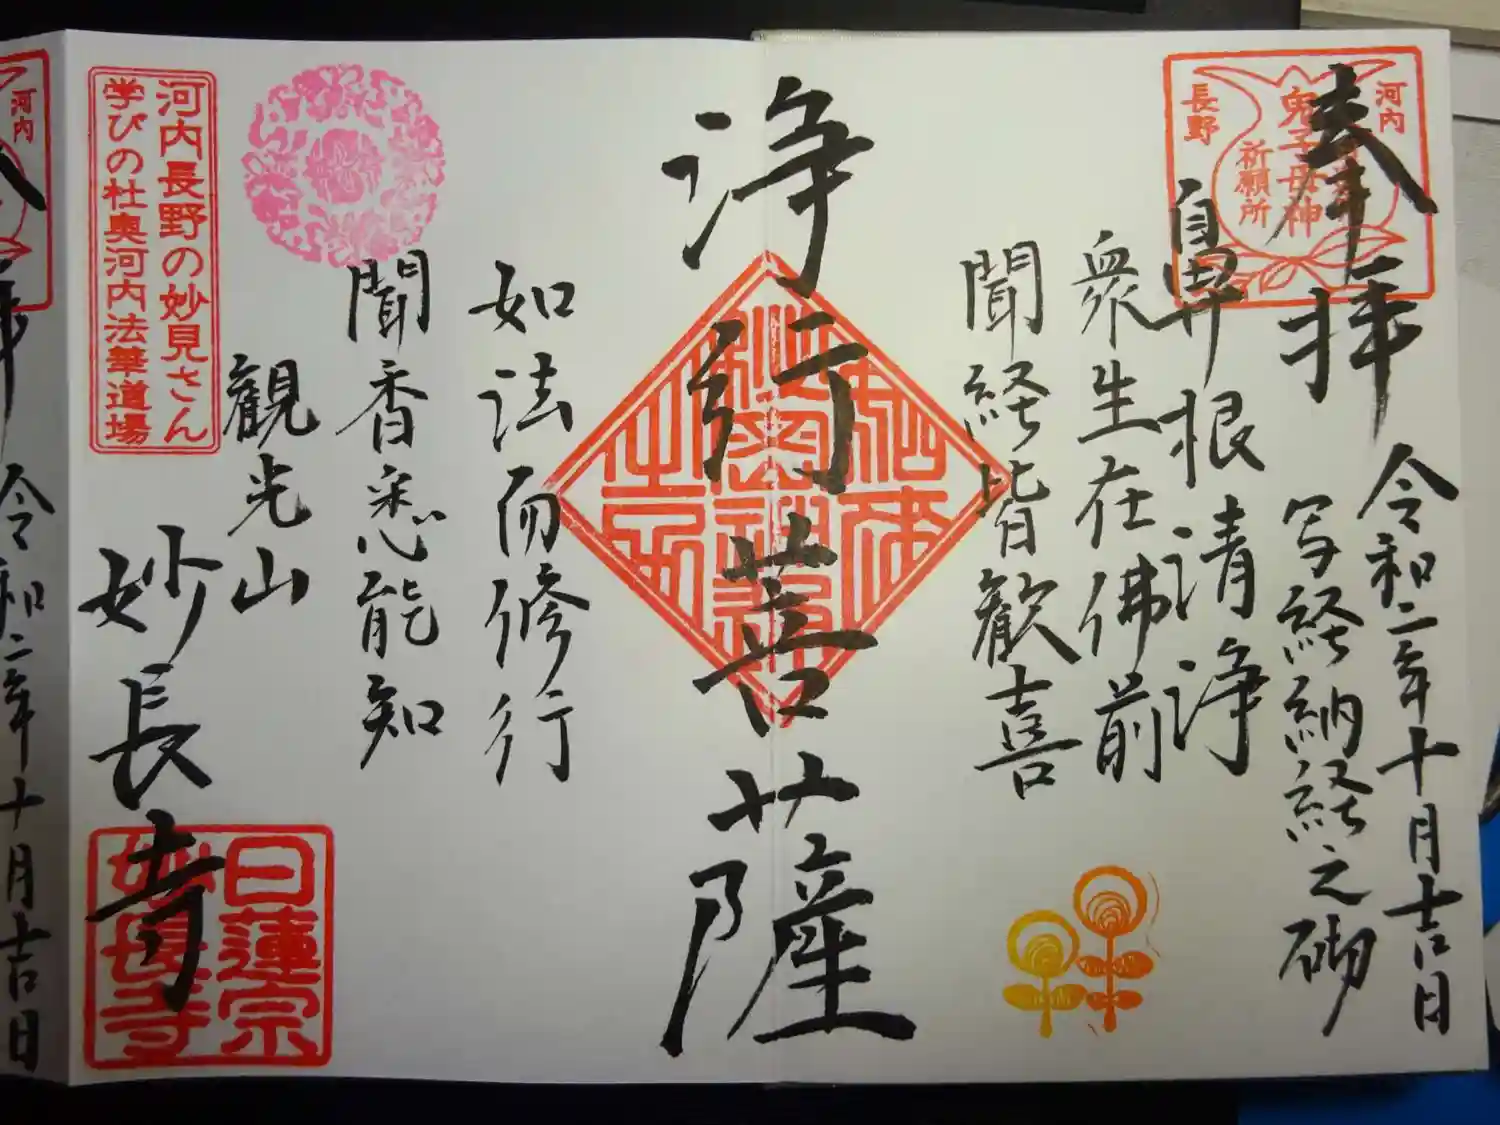 奉拝
令和二年十月吉日
写経納経之砌
河内
長野
鬼子母神
祈願所
鼻根清浄
衆生在佛前
聞経皆歓喜
浄行菩薩
如法而修行
聞香悉能知
観光山
妙長寺
日蓮宗
妙長寺
河内長野の妙見さん
学びの杜奥河内法華道場
河内
令和二年十月吉日